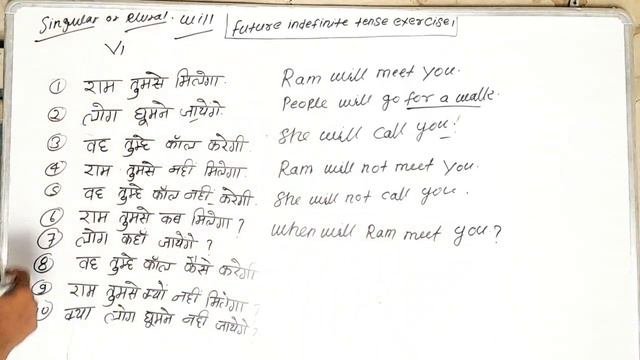 Singular or Plural. will
Future indefinite tense exercise1
V1
① राम तुमसे मिलेगा. Ram will meet you.
② लोग घूमने जायेगे. People will go for a walk.
③ वह तुम्हे कॉल करेगी She will call you!
④ राम तुमसे नही मिलेगा. Ram will not meet you.
⑤ वह तुम्हे कॉल नही करेगी. She will not call you.
⑥ राम तुमसे कब मिलेगा? When will Ram meet you?
⑦ लोग कहाँ जायेगे?
⑧ वह तुम्हे कॉल कैसे करेगी
⑨ राम तुमसे क्यों नही मिलेगा?
10 क्या लोग घूमने नही जायेगे?